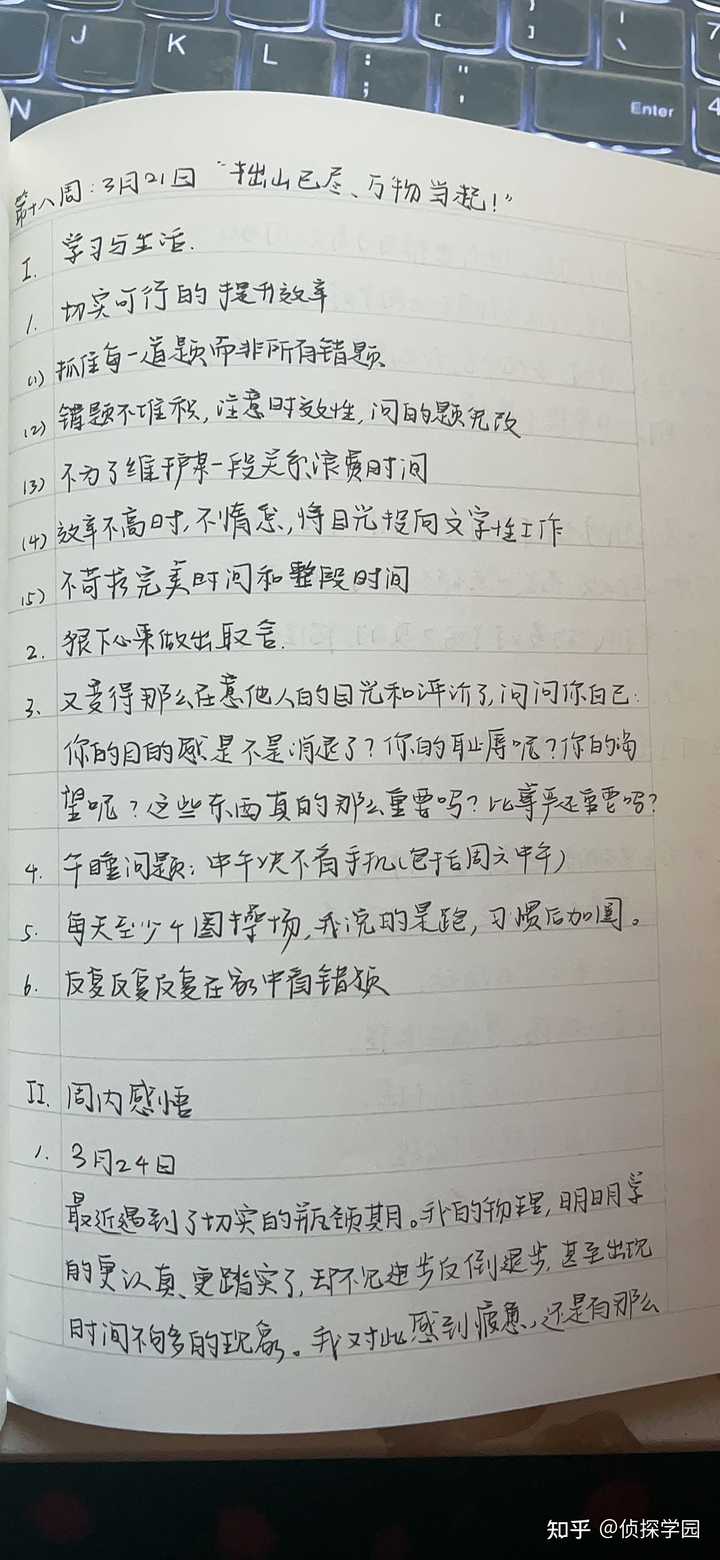 J
K
L
[
{
}
]
|
\
7
:
;
"
'
N
Enter
4
第十八周：3月21日 “拙山已尽、万物当起！”
I. 学习与生活.
1. 切实可行的提升效率
(1) 抓住每一道题而非所有错题
(2) 错题不堆积，注意时效性，问的题先改
(3) 不为了维护某一段关系浪费时间
(4) 效率不高时，不惰怠，将目光投向文字性工作
(5) 不苛求完美时间和整段时间
2. 狠下心来做出取舍.
3. 又变得那么在意他人的目光和评价了，问问你自己：
你的目的感是不是消退了？你的耻辱呢？你的渴
望呢？这些东西真的那么重要吗？比尊严还重要吗？
4. 午睡问题：中午决不看手机（包括周六中午）
5. 每天至少4圈操场，我说的是跑，习惯后加圈。
6. 反复反复反复在家中看错题
II. 周内感悟
1. 3月24日
最近遇到了切实的瓶颈期。我的物理，明明学
的更认真、更踏实了，却不见进步反倒退步，甚至出现
时间不够多的现象。我对此感到疲惫，还是有那么
知乎 @侦探学园